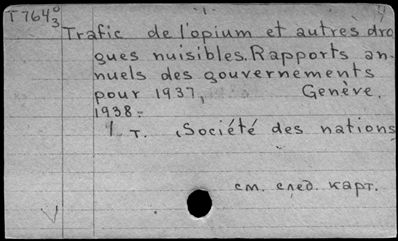 T 7640/3
Trafic de l'opium et autres dro
gues nuisibles. Rapports an-
nuels des gouvernements
pour 1937, Genève.
1938.-
1 т. (Société des nations
см. след. карт.